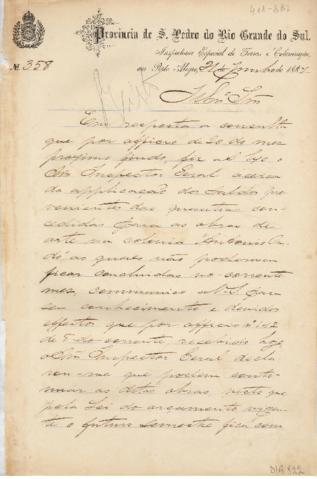 418-882
Provincia de S. Pedro do Rio Grande do Sul.
Inspectoria Especial de Terras e Colonisação,
em Porto Alegre, de Junho de 1887.
Nº 358
Illmo Snr
Em resposta a consulta
que por officio de 20 do mez
proximo findo, fiz ao
Snr Inspector Geral acerca
da applicação dos saldos pro
venientes das quantias con
cedidas para as obras de
arte na colonia
as quaes não poderiam
ficar concluidas no corrente
mez, communico a V.S. para
seu conhecimento e devidos
effeitos que por officio nº
de do corrente recebido hoje
o Snr Inspector Geral decla
rou-me que podem conti
nuar as ditas obras, visto que
pela Lei do orçamento vigen
te o futuro semestre fica sem
DIA 822